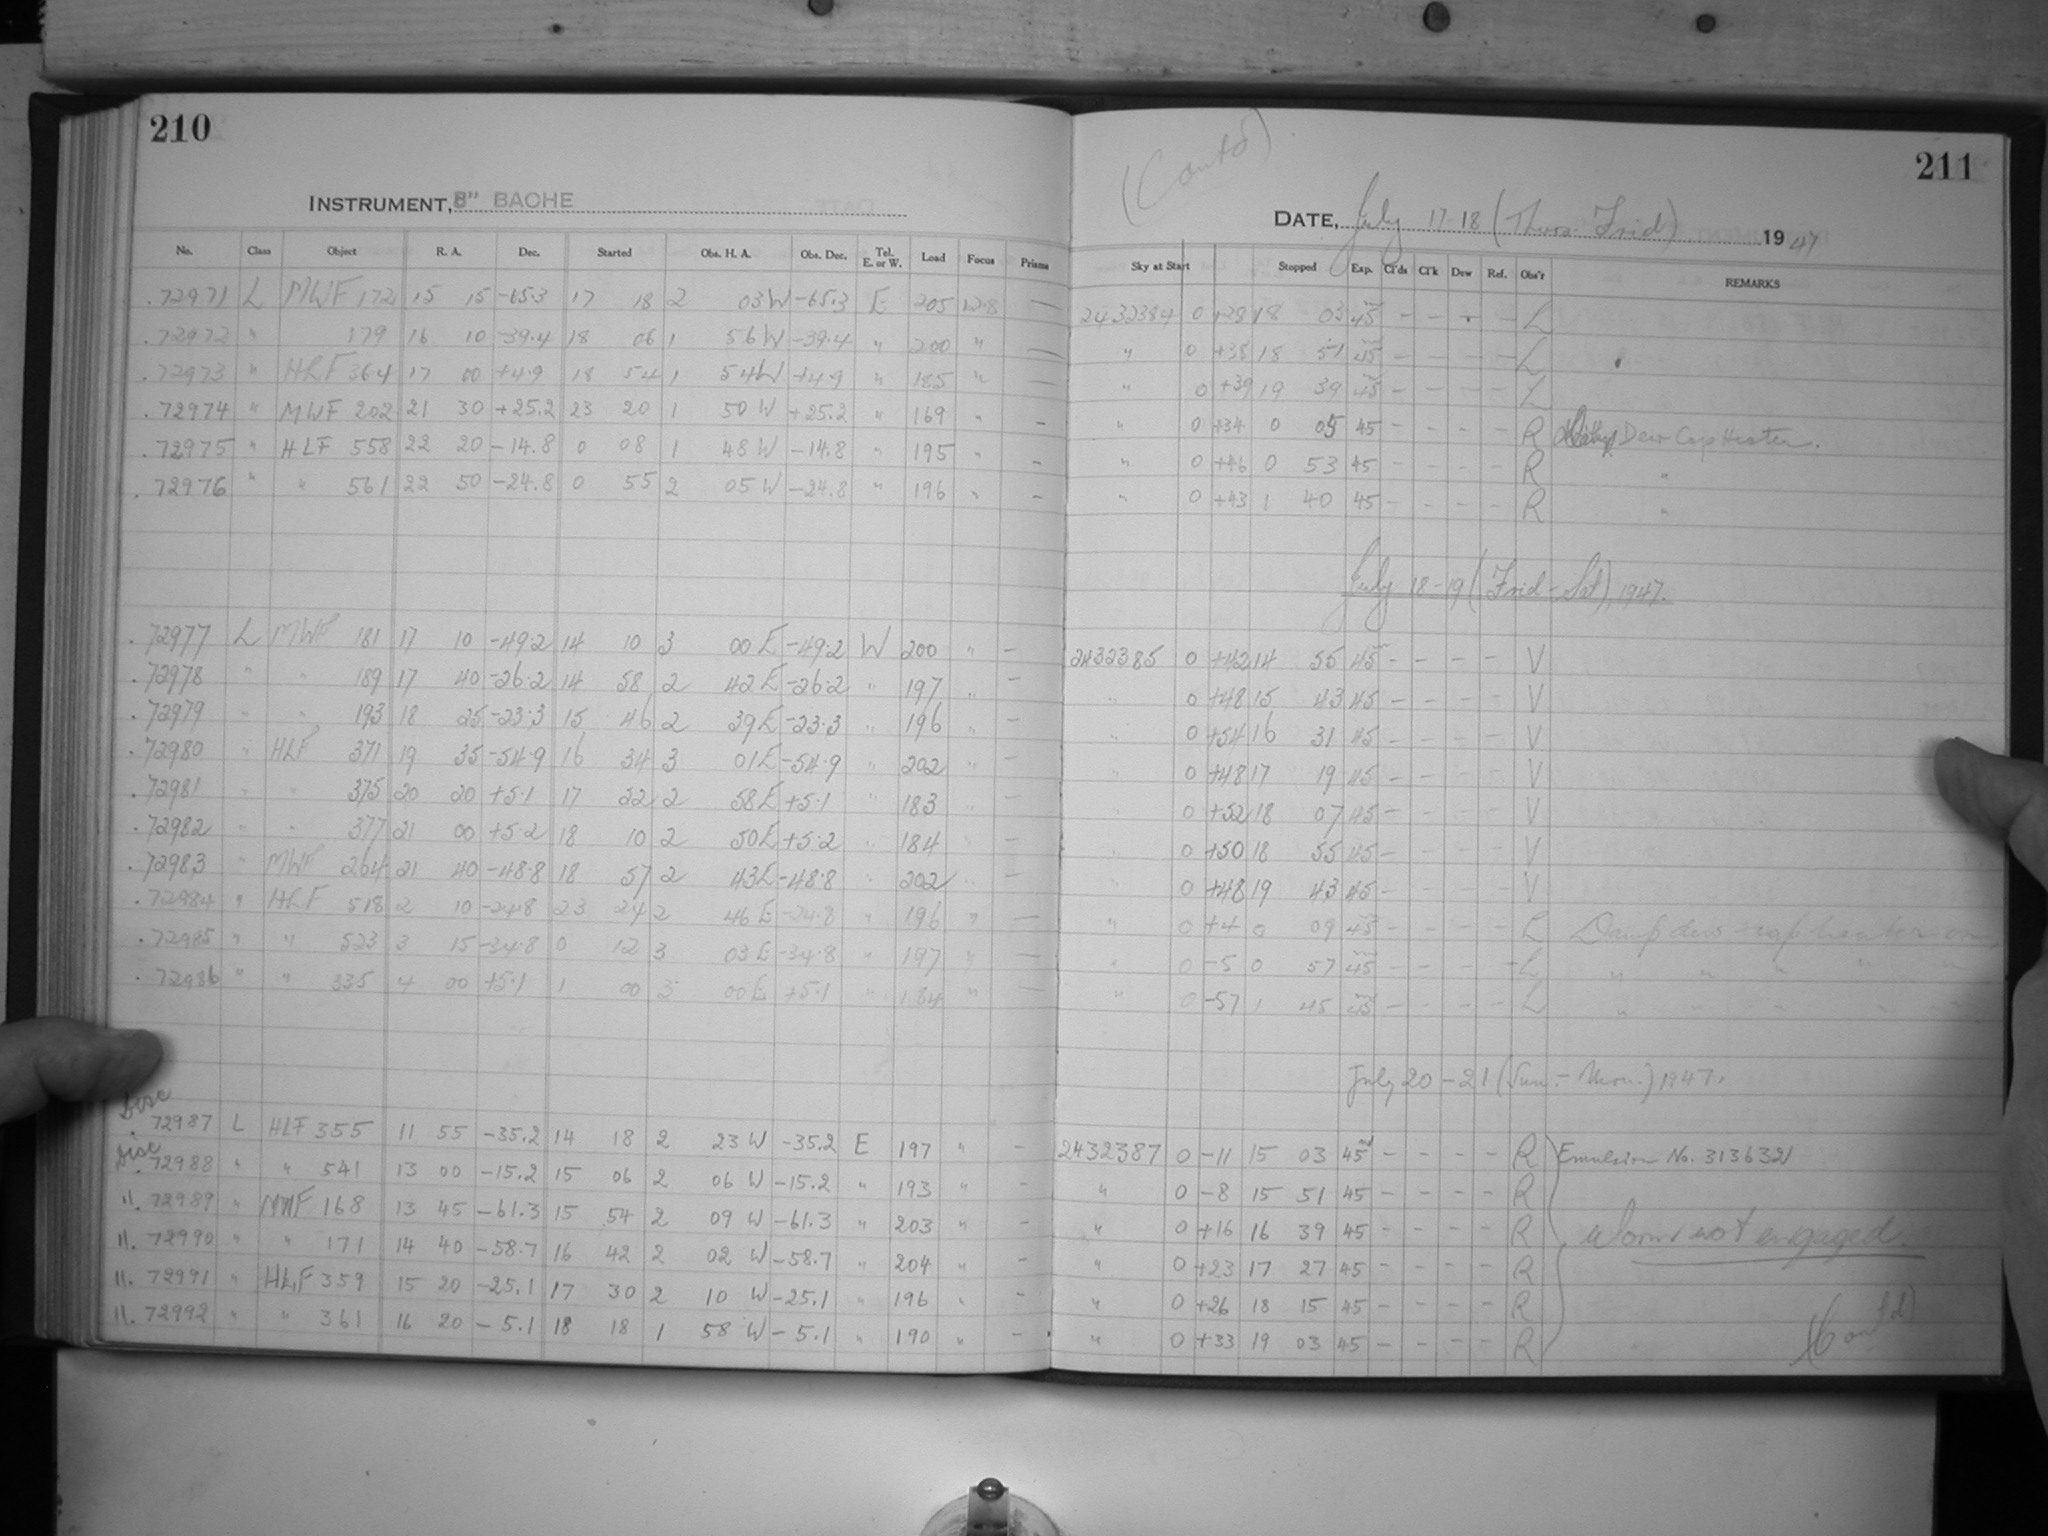 210
INSTRUMENT, 8" BACHE
No. Class Object R. A. Dec. Started Obs. H. A. Obs. Dec. Tel. E. or W. Load Focus Prisms
72971 L MWF 172 15 15 -65.3 17 18 2 03 W -65.3 E 205 12.8 —
72972 " 179 16 10 -39.4 18 06 1 56 W -39.4 " 200 " —
72973 " HLF 364 17 00 +4.9 18 54 1 54 W +4.9 " 185 " —
72974 " MWF 202 21 30 +25.2 23 20 1 50 W +25.2 " 169 " –
72975 " HLF 558 22 20 -14.8 0 08 1 48 W -14.8 " 195 " –
72976 " " 561 22 50 -24.8 0 55 2 05 W -24.8 " 196 " –
72977 L MWF 181 17 10 -49.2 14 10 3 00 E -49.2 W 200 " –
72978 " " 189 17 40 -26.2 14 58 2 42 E -26.2 " 197 " –
72979 " " 193 18 25 -23.3 15 46 2 39 E -23.3 " 196 " –
72980 " HLF 371 19 35 -54.9 16 34 3 01 E -54.9 " 202 " –
72981 " " 375 20 20 +5.1 17 22 2 58 E +5.1 " 183 " –
72982 " " 377 21 00 +5.2 18 10 2 50 E +5.2 " 184 " –
72983 " MWF 264 21 40 -48.8 18 57 2 43 E -48.8 " 202 " –
72984 " HLF 518 2 10 -24.8 23 24 2 46 E -24.8 " 196 " —
72985 " " 523 3 15 -34.8 0 12 3 03 E -34.8 " 197 " —
72986 " " 335 4 00 +5.1 1 00 3 00 E +5.1 " 184 " —
disc
72987 L HLF 355 11 55 -35.2 14 18 2 23 W -35.2 E 197 " –
disc
72988 " " 541 13 00 -15.2 15 06 2 06 W -15.2 " 193 " –
11. 72989 " MWF 168 13 45 -61.3 15 54 2 09 W -61.3 " 203 " –
11. 72990 " " 171 14 40 -58.7 16 42 2 02 W -58.7 " 204 " –
11. 72991 " HLF 359 15 20 -25.1 17 30 2 10 W -25.1 " 196 " –
11. 72992 " " 361 16 20 -5.1 18 18 1 58 W -5.1 " 190 " –
(Contd)
211
DATE, July 17-18 (Thurs-Frid) 1947
Sky at Start Stopped Exp. Cl'ds Cl'k Dew Ref. Obs'r REMARKS
2432384 0 +28 18 03 45 – – – – L
" 0 +38 18 51 45 – – – – L
" 0 +39 19 39 45 – – – – L
" 0 +34 0 05 45 – – – – R Dew Cap Heater.
" 0 +46 0 53 45 – – – – R "
" 0 +43 1 40 45 – – – – R "
July 18-19 (Frid-Sat), 1947.
2432385 0 +42 14 55 45 – – – – V
" 0 +48 15 43 45 – – – – V
" 0 +54 16 31 45 – – – – V
" 0 +48 17 19 45 – – – – V
" 0 +52 18 07 45 – – – – V
" 0 +50 18 55 45 – – – – V
" 0 +48 19 43 45 – – – – V
" 0 +4 0 09 45 – – – – L Damp dew-cap heater on
" 0 -5 0 57 45 – – – – L " " " " "
" 0 -57 1 45 45 – – – – L " " " " "
July 20-21 (Sun.-Mon.) 1947.
2432387 0 -11 15 03 45 – – – – R Emulsion No. 313632
" 0 -8 15 51 45 – – – – R
" 0 +16 16 39 45 – – – – R Worm not engaged.
" 0 +23 17 27 45 – – – – R
" 0 +26 18 15 45 – – – – R
" 0 +33 19 03 45 – – – – R
(Contd)